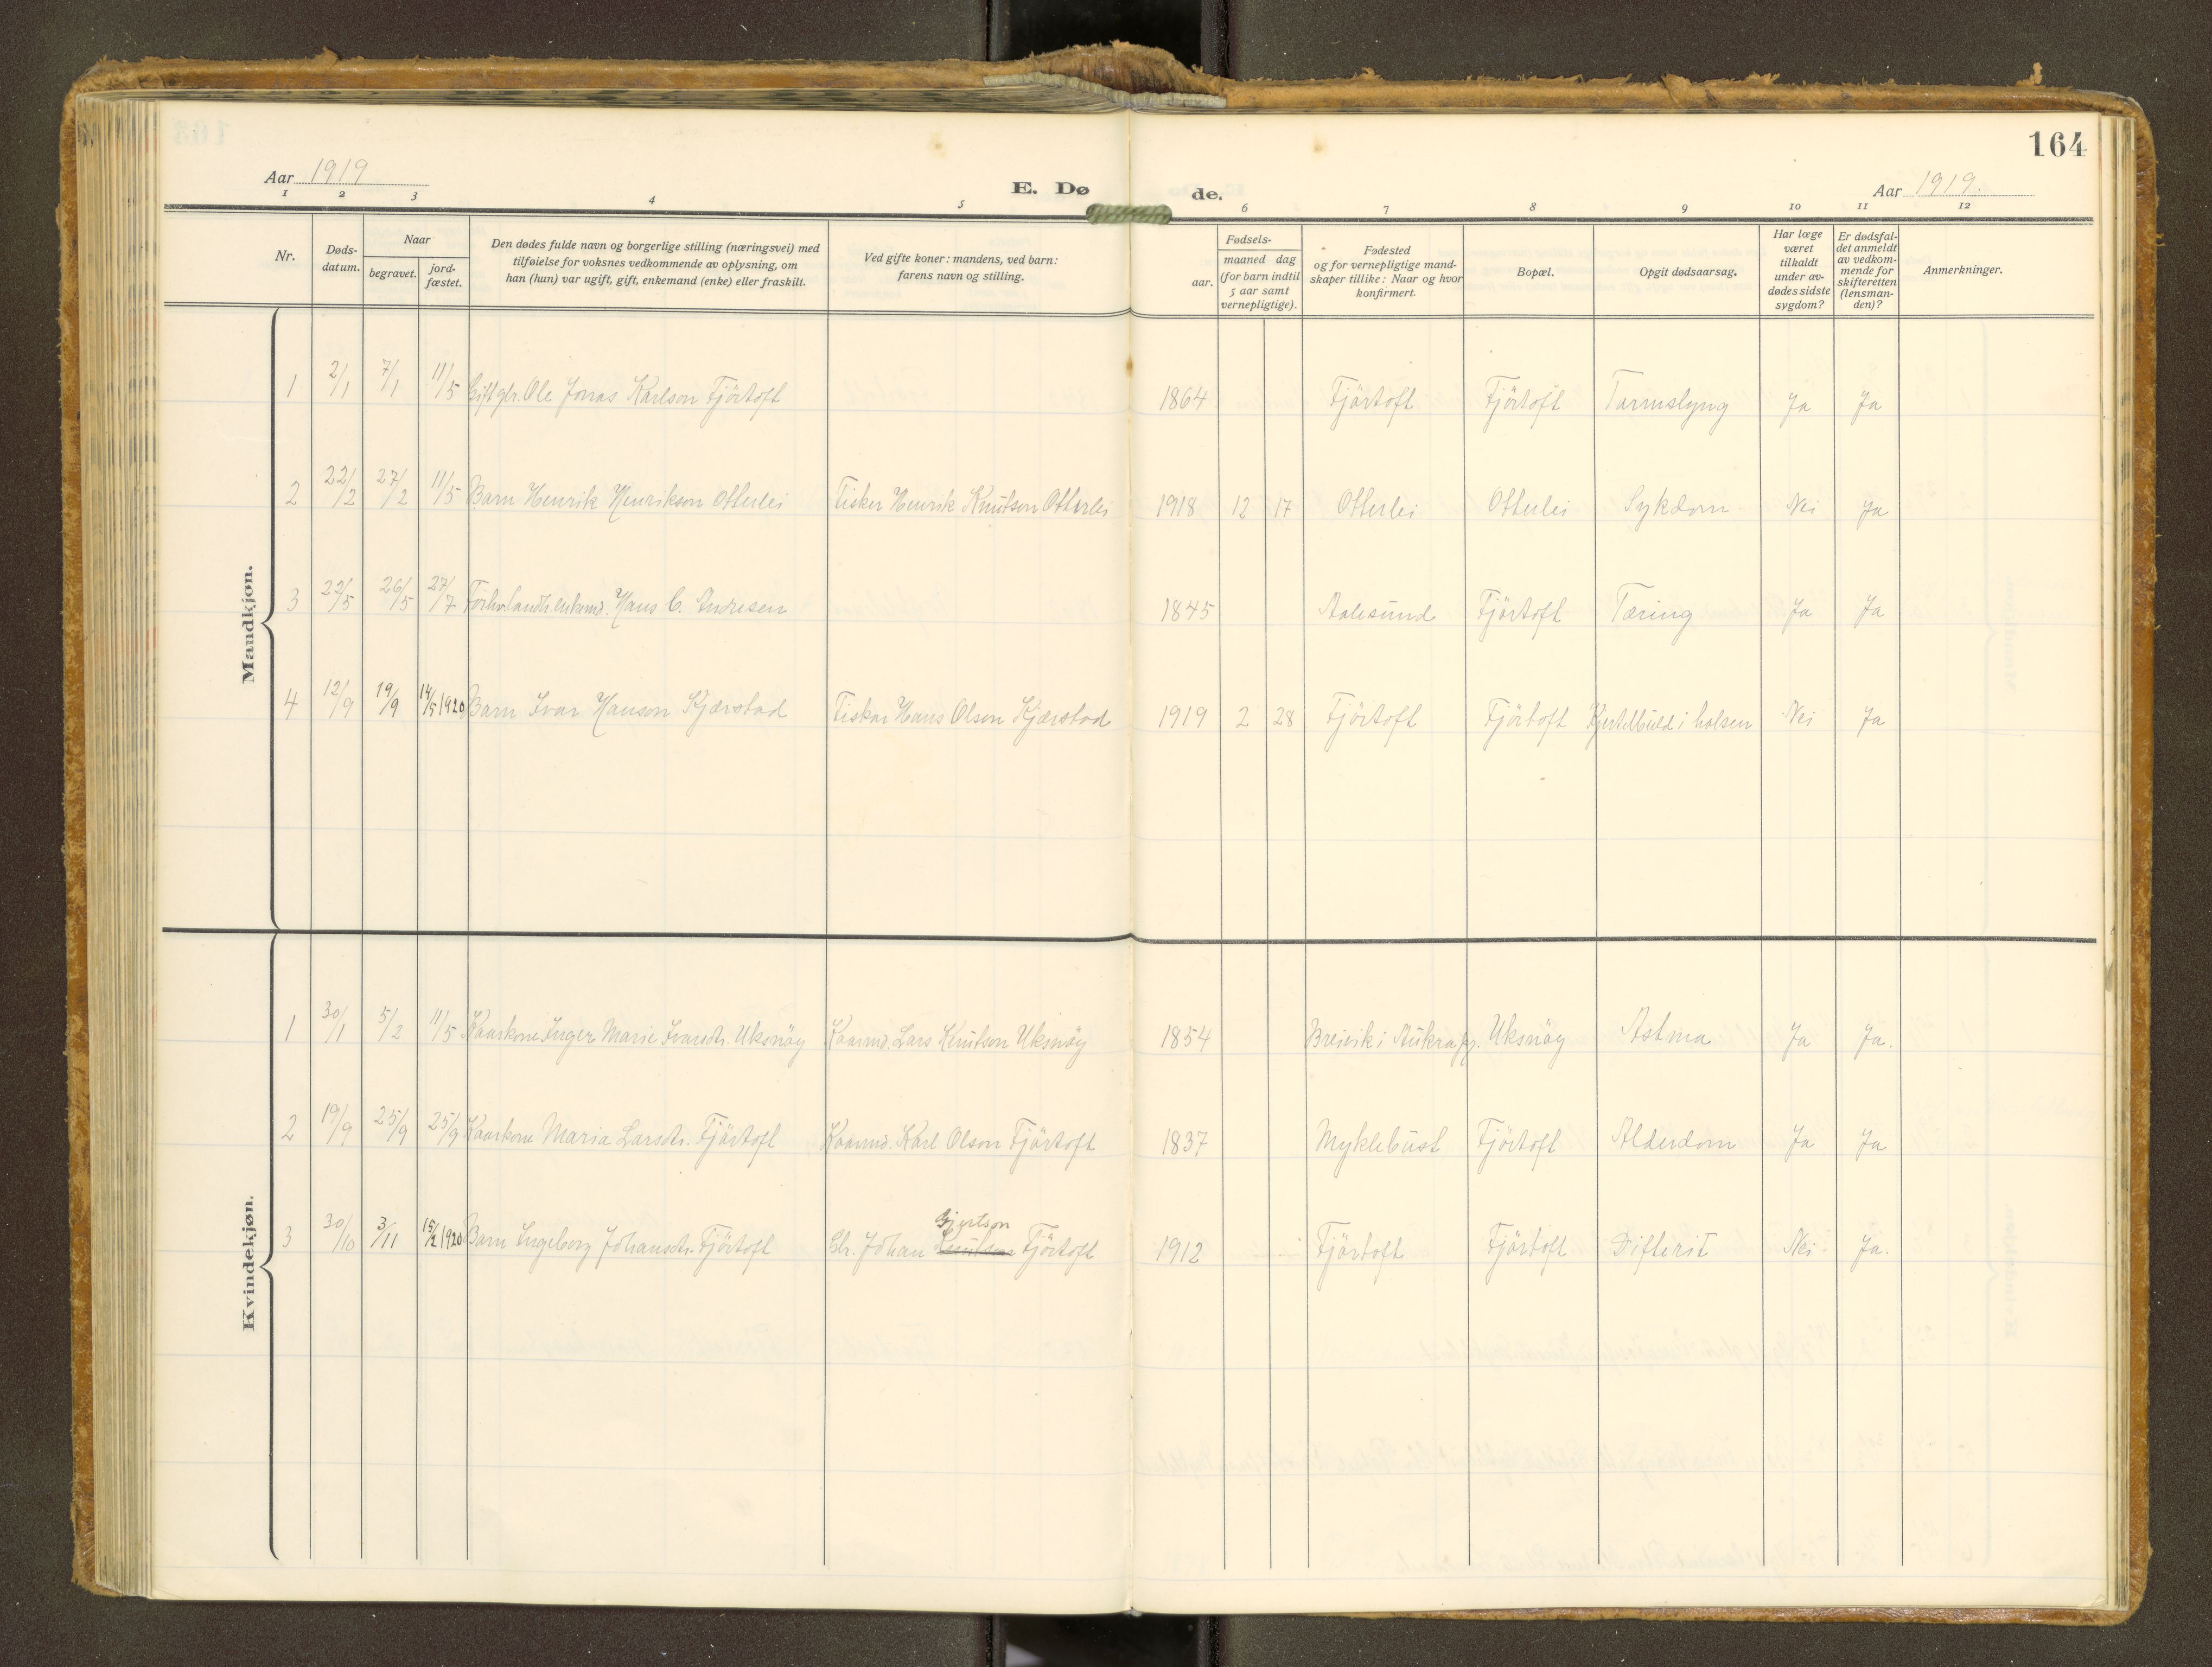 164
Aar 1919
E. Dø de.
Aar 1919.
1 2 3 4 5 6 7 8 9 10 11 12
Nr.
Døds-
datum.
Naar
begravet.
jord-
fæstet.
Den dødes fulde navn og borgerlige stilling (næringsvei) med
tilføielse for voksnes vedkommende av oplysning, om
han (hun) var ugift, gift, enkemand (enke) eller fraskilt.
Ved gifte koner: mandens, ved barn:
farens navn og stilling.
Fødsels-
aar.
maaned dag
(for barn indtil
5 aar samt
vernepligtige).
Fødested
og for vernepligtige mand-
skaper tillike: Naar og hvor
konfirmert.
Bopæl.
Opgit dødsaarsag.
Har læge
været
tilkaldt
under av-
dødes sidste
sygdom?
Er dødsfal-
det anmeldt
av vedkom-
mende for
skifteretten
(lensman-
den)?
Anmerkninger.
Mandkjøn.
1 2/1 7/1 11/5 Gift gbr. Ole Jonas Karlson Fjörtoft 1864 Fjörtoft Fjörtoft Tarmslyng Ja Ja
2 22/2 27/2 11/5 Barn Henrik Henrikson Otterlei Fisker Henrik Knutson Otterlei 1918 12 17 Otterlei Otterlei Sykdom Nei Ja
3 22/5 26/5 27/7 enkemd. Hans C. Andresen 1845 Aalesund Fjörtoft Tæring Ja Ja
4 12/9 19/9 14/5 1920 Barn Ivar Hanson Kjærstad Fisker Hans Olson Kjærstad 1919 2 28 Fjörtoft Fjörtoft Kjertelbuld i halsen Nei Ja
Kvindekjøn.
1 30/1 5/2 11/5 Kaarkone Inger Marie Ivarsdtr. Uksnöy Kaarmd. Lars Knutson Uksnöy 1854 Breivik i Aukra pg. Uksnöy Astma Ja Ja.
2 19/9 25/9 25/9 Kaarkone Maria Larsdtr. Fjörtoft Kaarmd. Karl Olson Fjörtoft 1837 Myklebust Fjörtoft Alderdom Ja Ja
Gjertson
3 30/10 3/11 15/2 1920 Barn Ingeborg Johansdtr. Fjörtoft Gbr. Johan Knutson Fjörtoft 1912 Fjörtoft Fjörtoft Difterit Nei Ja.